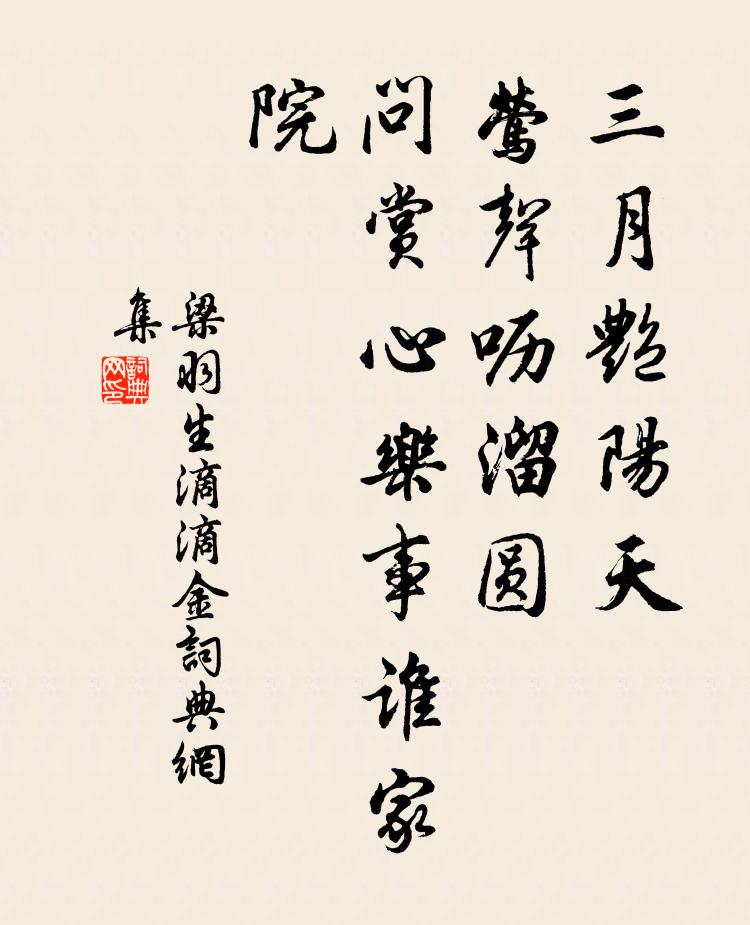 三月艷陽天
鶯聲呖溜圆
問賞心樂事誰家
院
梁羽生滴滴金詞典網
集
詞典
网印